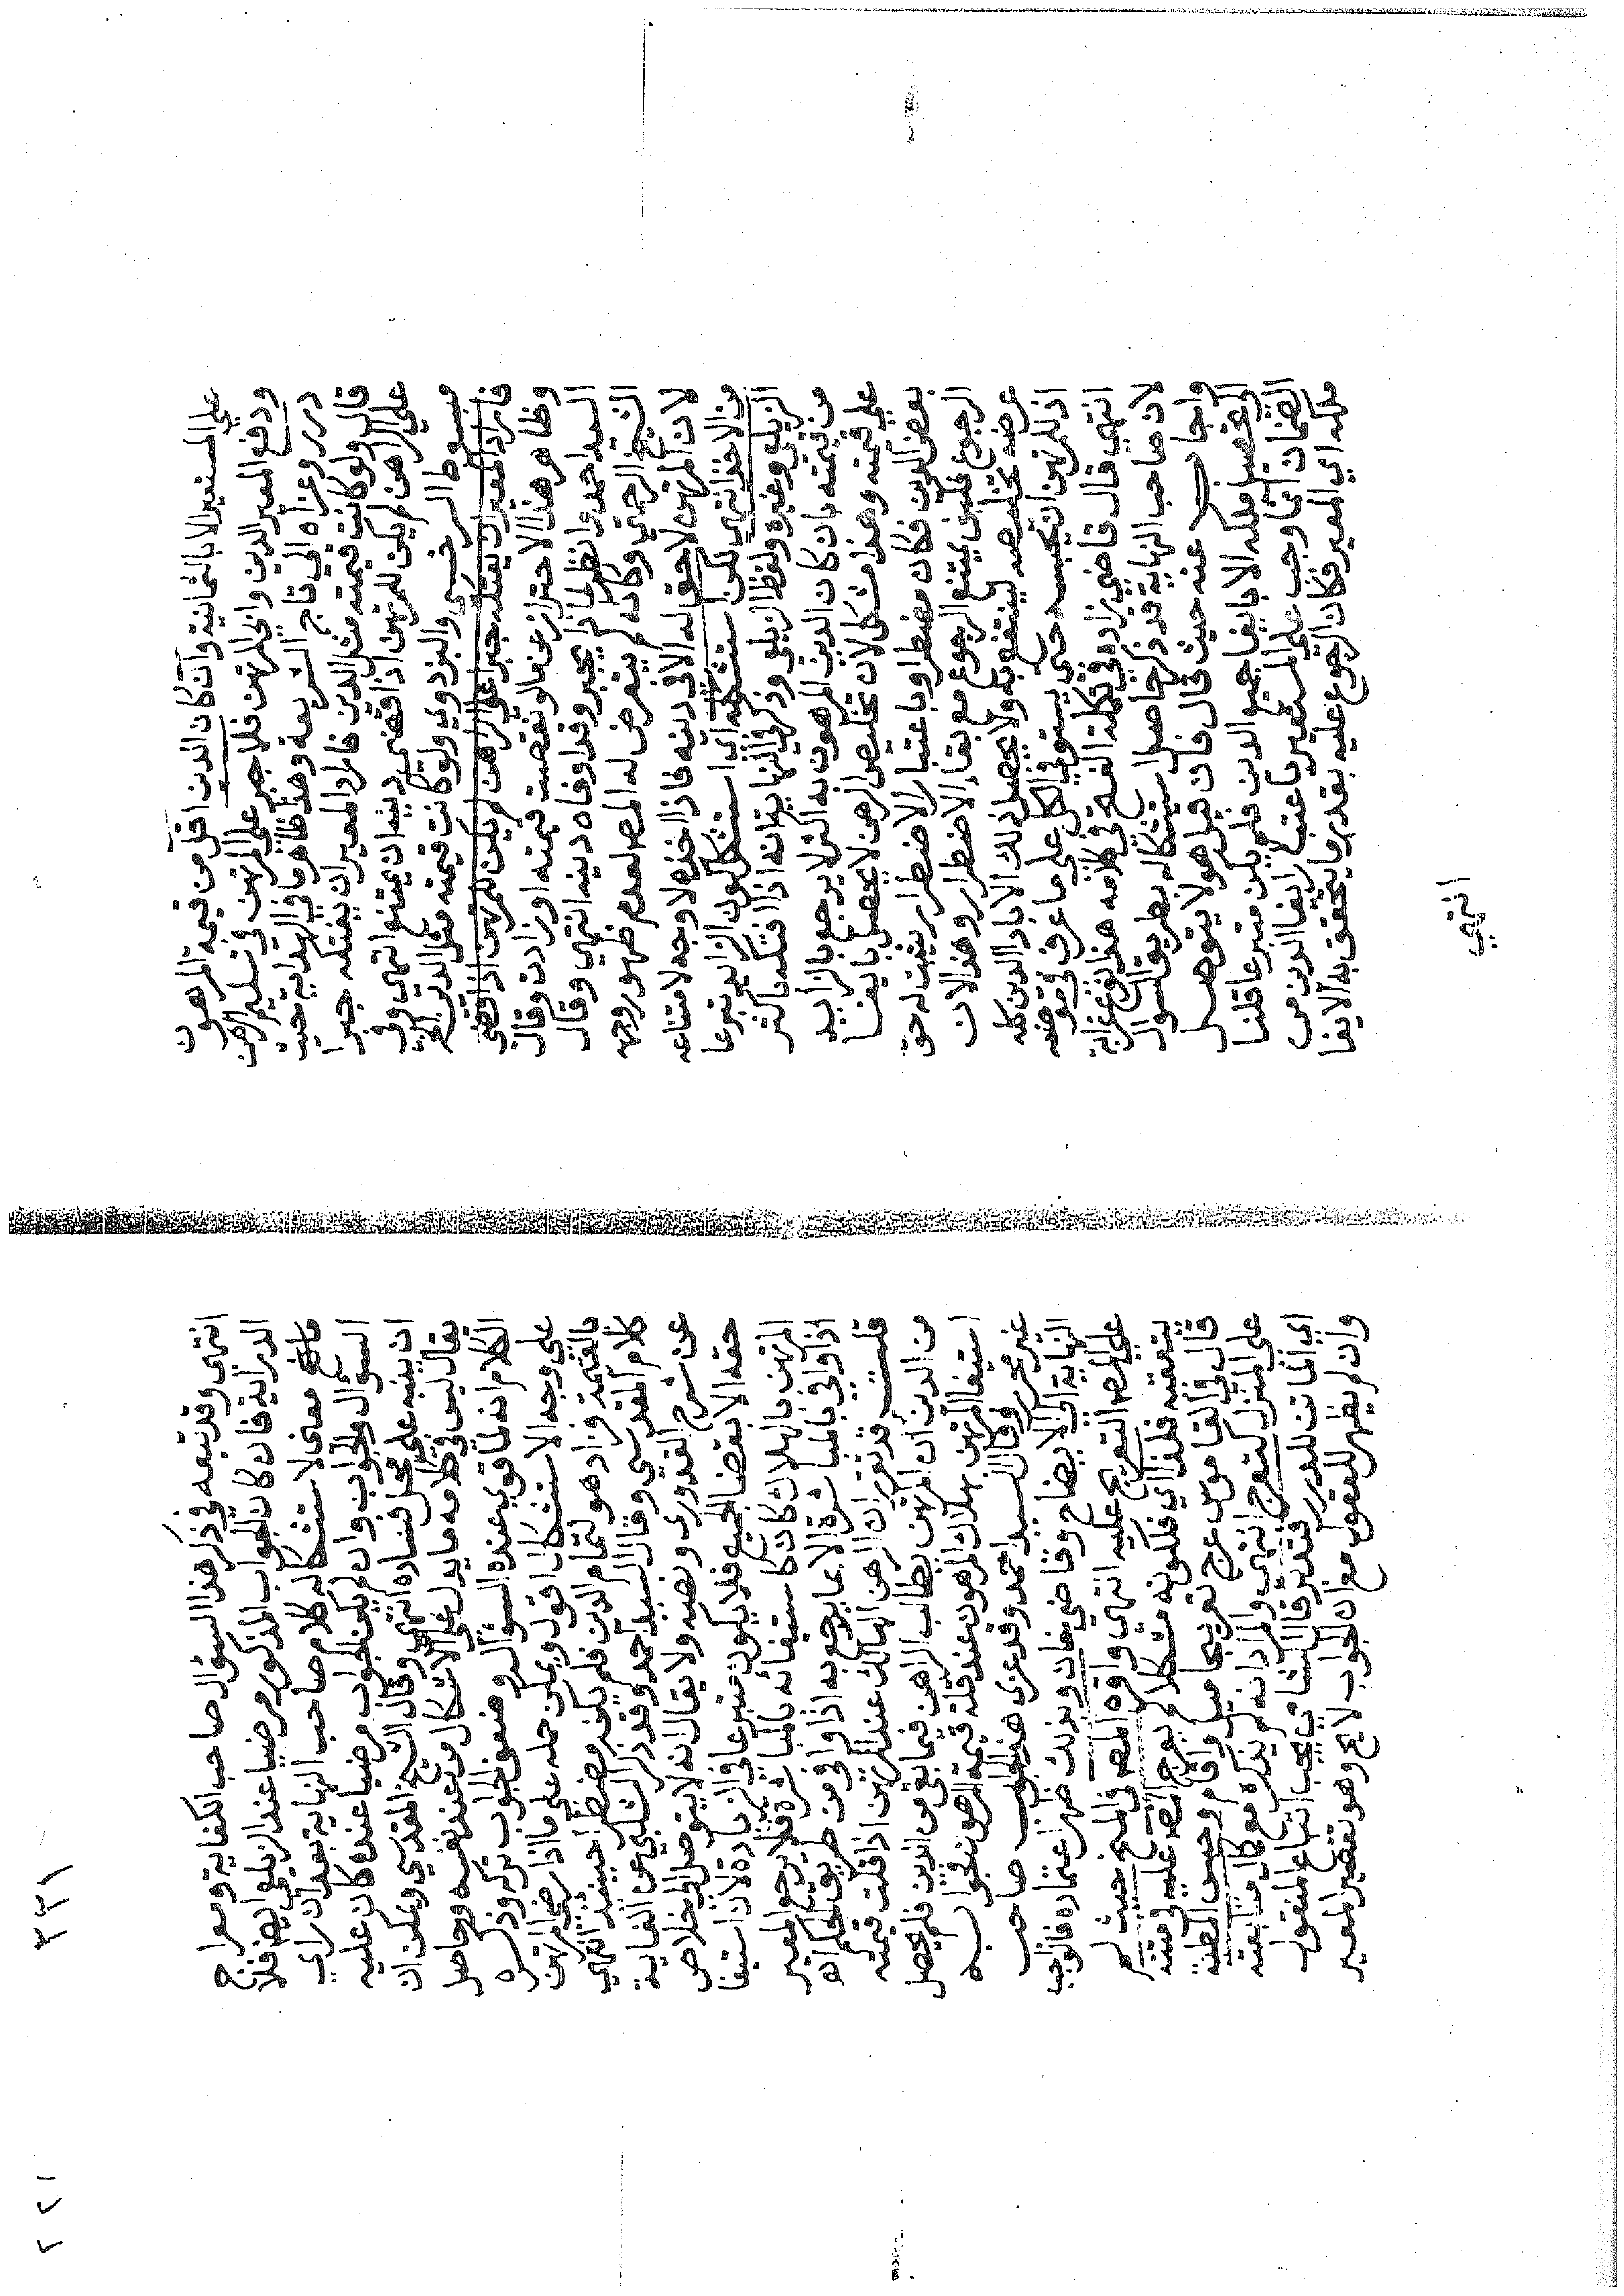 علي المستعير الا بالثمانية وان كان الدين اقل من قيمة المرهون
ودفع المعير الدين وابي المرتهن فلا جبر علي المرتهن في تسليم الرهن
درر وعزاه الي تاج الشريعة وهذا ظاهر ما في الهداية حيث
قال ولو كانت قيمته مثل الدين فاراد المعير ان يفتكه جبرا
علي الراهن لم يكن للمرتهن اذا قضي دينه ان يمتنع انتهي وفي
مبسوط السرخسي والبزدوي ولو كانت قيمته مثل الدين
فاراد المعير ان يفتكه جبرا علي الراهن لم يكن للمرتهن اذا قضي
وظاهر هذا الاحتراز عن ما لو نقصت قيمته او زادت وقال
السيد احمد وانظر لماذا لم يجبر وقد اوفاه دينه انتهي وقال
الشيخ الرحمتي وكانه لم يتعرض له المص لعدم ظهور وجهه
لان المرتهن لا حق له الا في دينه فاذا اخذه لا وجه لامتناعه
من الاخذ انتهي لكن استشكله اي استشكل كون الزايد تبرعا
الزيلعي وغيره ولفظ الزيلعي وذكر في النهاية انه اذا افتكه باكثر
من قيمته بان كان الدين المرهون به اكثر لا يرجع بالزايد
علي قيمته وهذا مشكل لان تخليص الرهن لا يحصل بايفا
بعض الدين فكان مضطرا وباعتبار الاضطرار يثبت له حق
الرجوع فكيف يمتنع الرجوع مع بقاء الاضطرار وهذا لان
غرضه تخليصه لينتفع به ولا يحصل ذلك الا باداء الدين كله
اذ للمرتهن ان يحبسه حتي يستوفي الكل علي ما عرف في موضعه
انتهي قال قاضي زاده في تكملة الفتح في كلامه هذا نوع غرابة
لان صاحب النهاية قد ذكر حاصل استشكاله بطريق السوال
واجاب عنه حيث قال فان قيل هو لا يتوصل
الي تحصيل ملكه الا بايفا جميع الدين فلم يكن متبرعا قلنا
الضمان انما وجب علي المستعير باعتبار ايفا الدين من
ملكه اي المعير فكان الرجوع عليه بقدر ما يتحقق به الايفا
انتهي
٣٣١
انتهي وقد تبعه في ذكر هذا السوال صاحب الكفاية ومعراج
الدراية فان كان الجواب المذكور مرضيا عند الزيلعي ايض فلا
معني لاستشكاله كلام صاحب النهاية بعد ان راي
السؤال والجواب وان لم يكن الجواب مرضيا عنده كان عليه
ان يبنه علي محل فساده انتهي وقال الشيخ المقدسي ويمكن ان
يقال ليس في كلامه ما يدل علي الاشكال من عند نفسه وحاصل
الكلام انه لما قوي عنده السؤال وضعف الجواب تركه وذكره
علي وجه الاستشكال اقول ويمكن حمله علي ما اذا رضي المرتهن
بالقيمة فزاد هو لتمام الدين فلم يكن مضطرا حينئذ انتهي
كلام المقدسي وقال السيد احمد وقد ذكر الشلبي عن الغاية
عن شرح القدوري ونصه ولا يقال انه لا يتوصل الي خلاص
حقه الا بقضا الجميع فلا يكون متبرعا في الزيادة لان استيفا
المرتهن بالهلاك كان كاستيفائه بالمباشرة فلا يرجع المعير
اذا وافي بالمباشرة الا بما يرجع به اذا وافي من طريق الحكم اه
قلت قد تقرر ان الرهن الهالك عند المرتهن اذا قلت قيمته
من الدين ان المرتهن يطالب الراهن فيما بقي من الدين فلم يحصل
استيفا المرتهن بهلاك المرهون عند قلة قيمة المرهون فجوابه
غير محرر وقال السيد احمد وقد عزي هذا الجواب صاحب
النهاية الي الايضاح وقاضي خان وبذلك ظهر اعتماده فالواجب
علي المص التعريج عليه انتهي واقره المص في المنح حيث لم
يتعقبه فلذا اي فلكونه مشكلا لم يعرج المص عليه في متنه
قال في القاموس عرج تعريجا ميل واقام وحبس المطية
علي المنزل كتعرج انتهي والمراد انه لم يذكره مع كمال متابعته
اي المتن للدرر فتدبر قال الشارح يجب اتباع المنقول
وان لم يظهر للعقول مع ان الجواب لايح وهو تقصير المعير
٢٢١